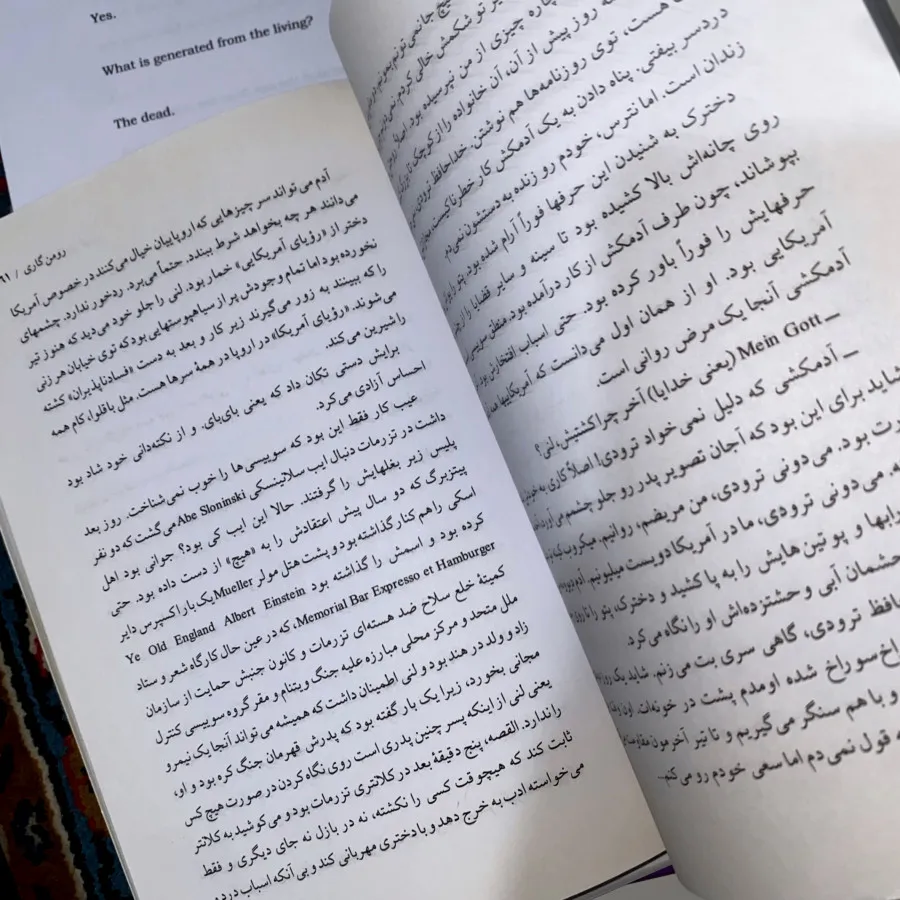 Yes.
What is generated from the living?
The dead.
رومن گاری / ۶۱
آدم می‌تواند سر چیزهایی که اروپاییان خیال می‌کنند در خصوص آمریکا
می‌دانند هر چه بخواهد شرط ببندد. حتماً می‌برد. ردخور ندارد. چشمهای
دختر از «رؤیای آمریکایی» خمار بود. لنی را جلو خود می‌دید که هنوز تیر
نخورده بود اما تمام وجودش پر از سیاهپوستهایی بود که توی خیابان هر زنی
را که ببینند به زور می‌گیرند زیر کار و بعد به دست «فسادناپذیران» کشته
می‌شوند. «رؤیای آمریکا» در اروپا در همهٔ سرها هست. مثل باقلوا، کام همه
را شیرین می‌کند.
برایش دستی تکان داد که یعنی بای‌بای. و از نکته‌دانی خود شاد بود
احساس آزادی می‌کرد.
عیب کار فقط این بود که سوییسی‌ها را خوب نمی‌شناخت. روز بعد
داشت در تزرمات دنبال ایب سلاینسکی Abe Sloninski می‌گشت که دو نفر
پلیس زیر بغلهایش را گرفتند. حالا این ایب کی بود؟ جوانی بود اهل
پیتزبرگ که دو سال پیش اعتقادش را به «هیچ» از دست داده بود. حتی
اسکی را هم کنار گذاشته بود و پشت هتل مولر Mueller یک بار اکسپرس دایر
کرده بود و اسمش را گذاشته بود Ye Old England Albert Einstein
Memorial Bar Expresso et Hamburger، که در عین حال کارگاه شعر و ستاد
کمیتهٔ خلع سلاح ضد هسته‌ای تزرمات و کانون جنبش حمایت از سازمان
ملل متحد و مرکز محلی مبارزه علیه جنگ ویتنام و مقر گروه سوییسی کنترل
زاد و ولد در هند بود و لنی اطمینان داشت که همیشه می‌تواند آنجا یک نیمرو
مجانی بخورد، زیرا یک بار گفته بود که پدرش قهرمان جنگ کره بود و او،
یعنی لنی از اینکه پسر چنین پدری است روی نگاه کردن در صورت هیچ کس
را ندارد. القصه، پنج دقیقهٔ بعد در کلانتری تزرمات بود و می‌کوشید به کلانتر
ثابت کند که هیچوقت کسی را نکشته، نه در بازل نه جای دیگری و فقط
می‌خواسته ادب به خرج دهد و با دختری مهربانی کند و بی‌آنکه اسباب دردسر
تو شکمش خالی کردم.
چاره چیزی از من نپرسیده بود.
سه روز پیش از آن، آن خانواده را از کوچک تا
هست، توی روزنامه‌ها هم نوشتن. خداحافظ ترودی
دردسر بیفتی. پناه دادن به یک آدمکش کار خطرناکیست.
زندان است. اما نترس، خودم رو زنده به دستشون نمی‌دم.
دخترک به شنیدن این حرفها فوراً آرام شده بود. پتو را
روی چانه‌اش بالا کشیده بود تا سینه و سایر قضایا را
بپوشاند، چون طرف آدمکش از کار درآمده بود.
حرفهایش را فوراً باور کرده بود. حتی اسباب افتخارش بود.
آمریکایی بود. او از همان اول می‌دانست که آمریکاییها
آدمکشی آنجا یک مرض روانی است.
ــ Mein Gott (یعنی خدایا) آخر چرا کشتیش، لنی؟
ــ آدمکشی که دلیل نمی‌خواد ترودی! اصلاً کاری به
شاید برای این بود که آجان تصویر پدر رو جلو چشمم می‌آورد.
بود. می‌دونی ترودی، من مریضم، روانیم.
می‌دونی ترودی، ما در آمریکا دویست میلیونیم.
و پوتین‌هایش را به پا کشید و دخترک، پتو را تا
چشمان آبی و حشتزده‌اش او را نگاه می‌کرد.
ترودی، گاهی سری بت می‌زنم. شاید یک روز
سوراخ شده اومدم پشت در خونه‌ات.
و با هم سنگر می‌گیریم و تا تیر آخرمون
قول نمی‌دم اما سعی خودم رو می‌کنم.